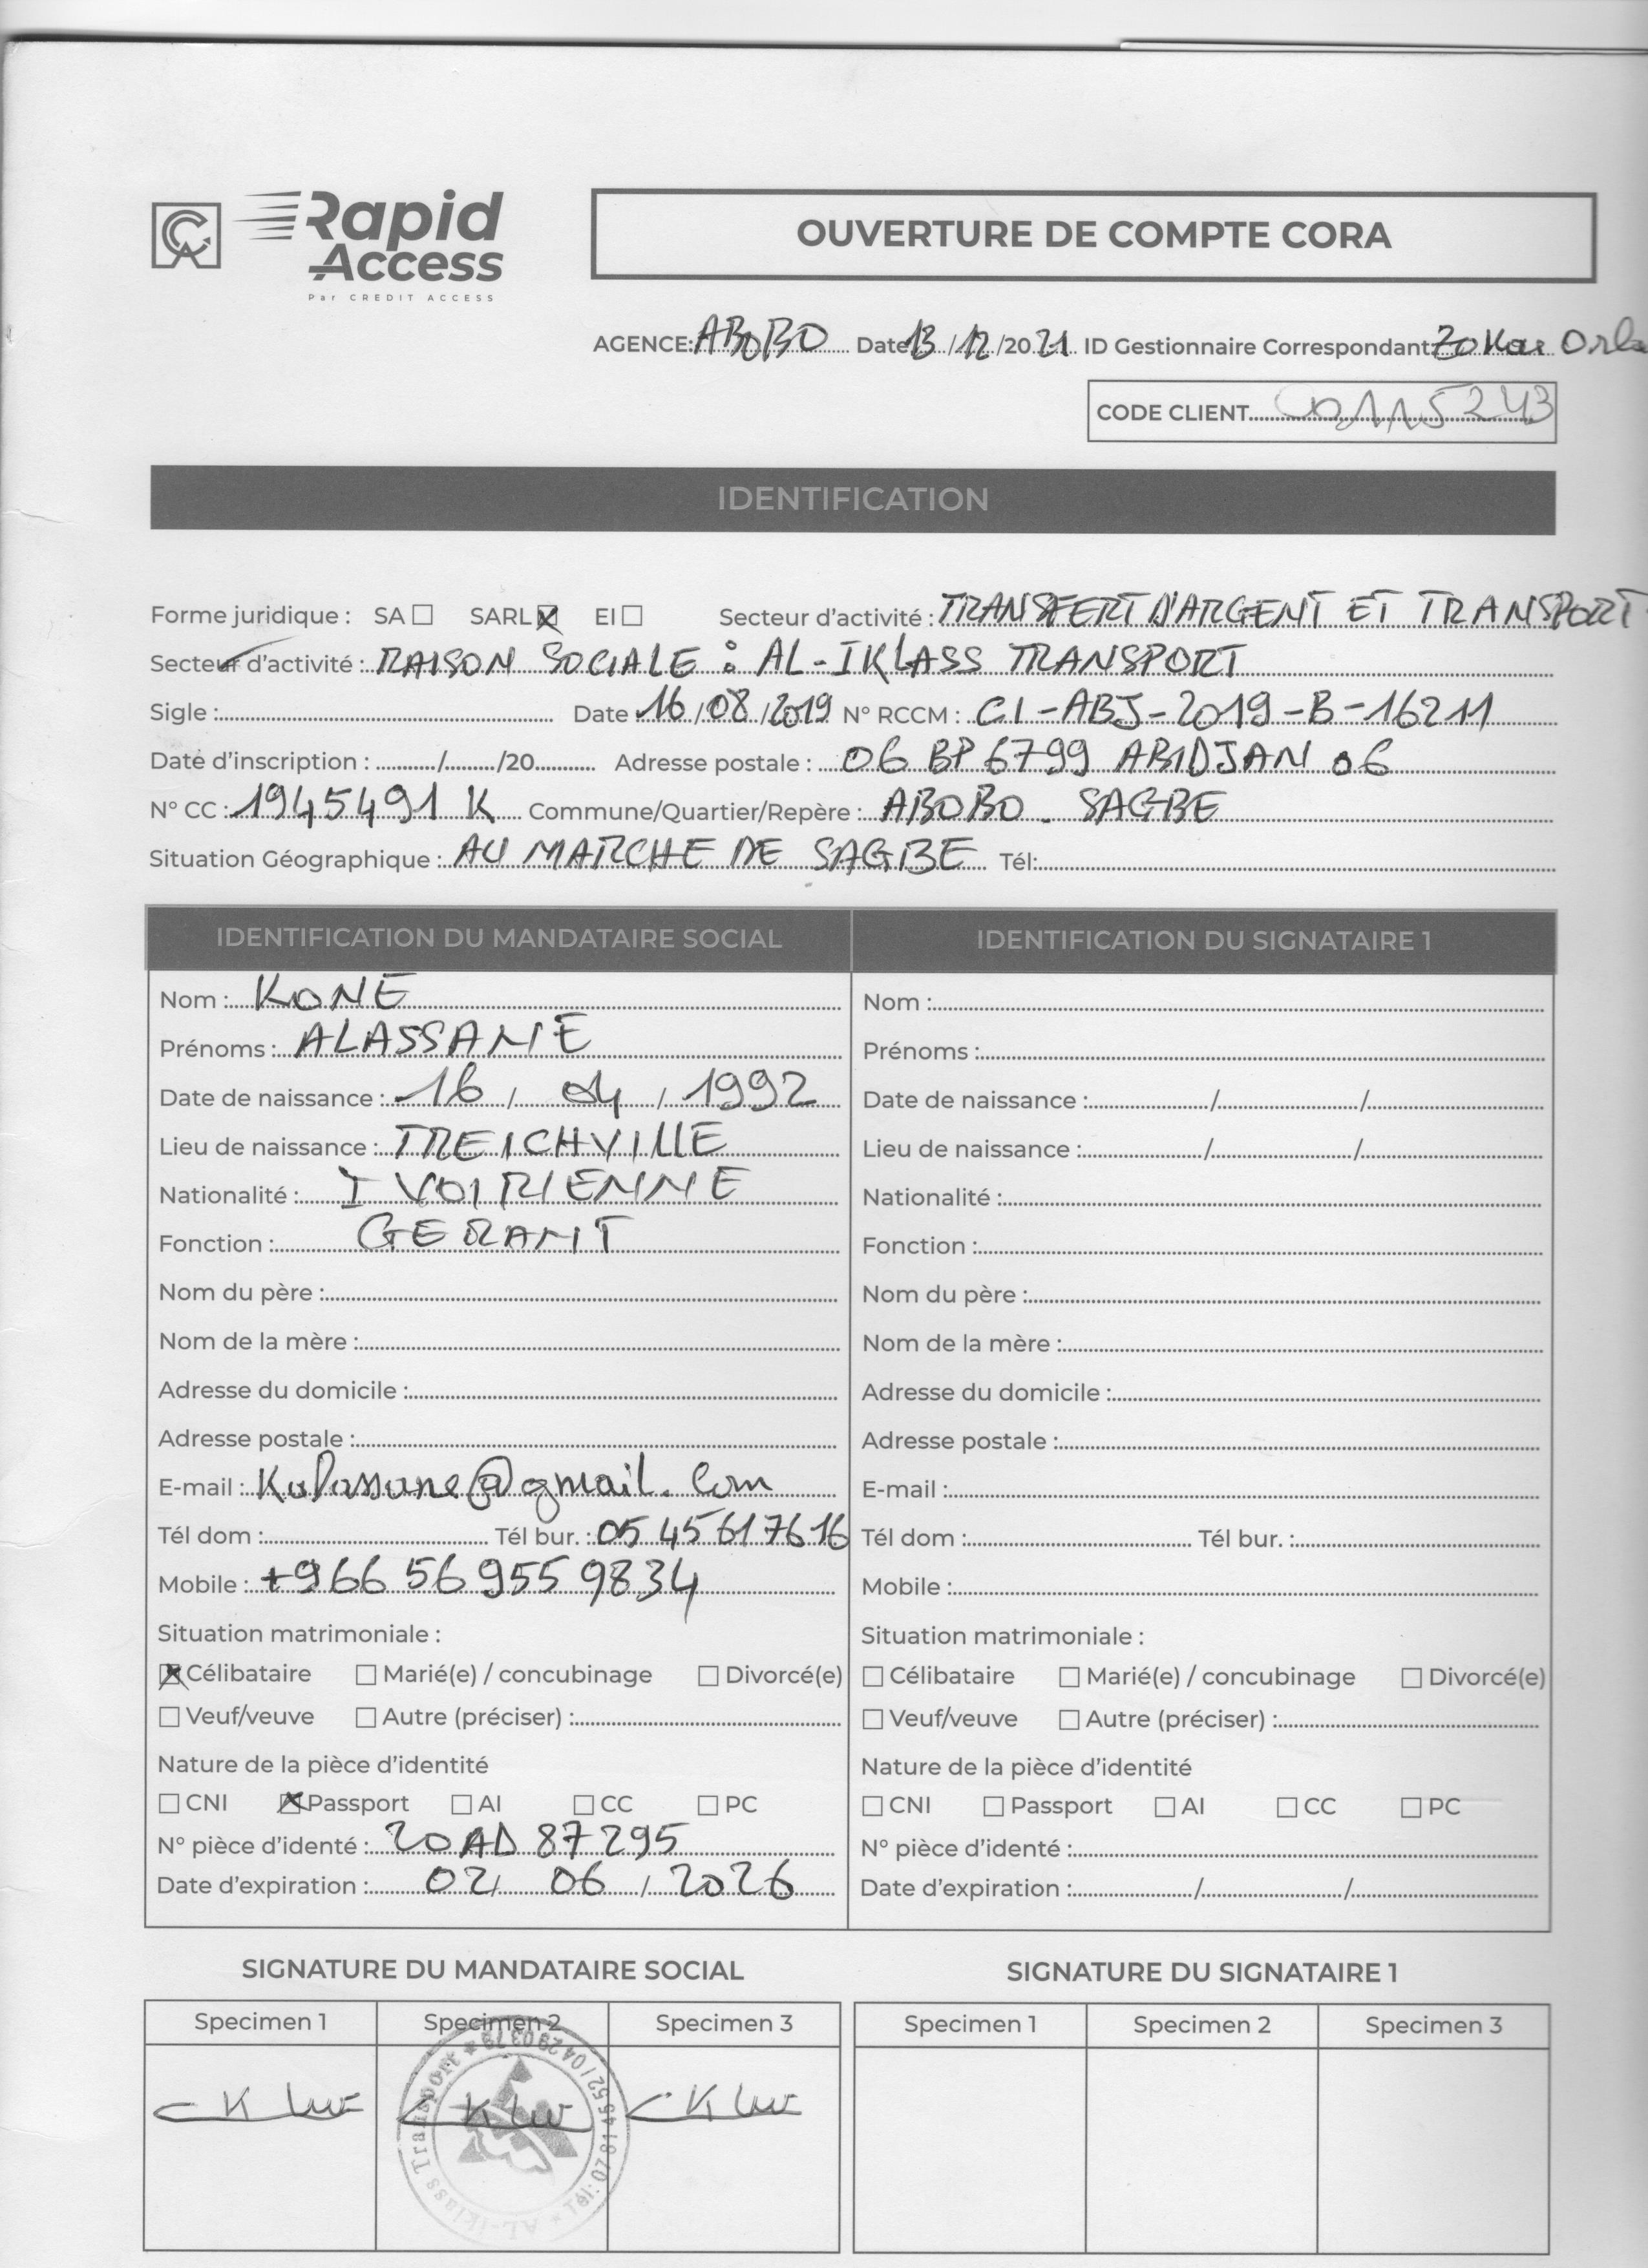 Rapid
Access
Par CREDIT ACCESS
OUVERTURE DE COMPTE CORA
AGENCE: ABOBO Date 13/12/2021 ID Gestionnaire Correspondant
CODE CLIENT C0115243
IDENTIFICATION
Forme juridique : SA ☐ SARL ☒ EI ☐ Secteur d'activité : TRANSFERT D'ARGENT ET TRANSPORT
Secteur d'activité : RAISON SOCIALE : AL-IKLASS TRANSPORT
Sigle : Date 16/08/2019 N° RCCM : CI-ABJ-2019-B-16211
Date d'inscription : / /20 Adresse postale : 06 BP 6799 ABIDJAN 06
N° CC : 1945491 K Commune/Quartier/Repère : ABOBO - SAGBE
Situation Géographique : AU MARCHE DE SAGBE Tél:
IDENTIFICATION DU MANDATAIRE SOCIAL
Nom : KONE
Prénoms : ALASSANE
Date de naissance : 16 / 04 / 1992
Lieu de naissance : TREICHVILLE
Nationalité : IVOIRIENNE
Fonction : GERANT
Nom du père :
Nom de la mère :
Adresse du domicile :
Adresse postale :
E-mail : Kalassane@gmail.com
Tél dom : Tél bur. : 05 45 61 76 16
Mobile : +966 56 955 9834
Situation matrimoniale :
☒ Célibataire ☐ Marié(e) / concubinage ☐ Divorcé(e)
☐ Veuf/veuve ☐ Autre (préciser) :
Nature de la pièce d'identité
☐ CNI ☒ Passport ☐ AI ☐ CC ☐ PC
N° pièce d'identé : 20AD 87295
Date d'expiration : 02/ 06 / 2026
IDENTIFICATION DU SIGNATAIRE 1
Nom :
Prénoms :
Date de naissance : / /
Lieu de naissance : / /
Nationalité :
Fonction :
Nom du père :
Nom de la mère :
Adresse du domicile :
Adresse postale :
E-mail :
Tél dom : Tél bur. :
Mobile :
Situation matrimoniale :
☐ Célibataire ☐ Marié(e) / concubinage ☐ Divorcé(e)
☐ Veuf/veuve ☐ Autre (préciser) :
Nature de la pièce d'identité
☐ CNI ☐ Passport ☐ AI ☐ CC ☐ PC
N° pièce d'identé :
Date d'expiration : / /
SIGNATURE DU MANDATAIRE SOCIAL
Specimen 1 Specimen 2 Specimen 3
AL-iklass Transport * Tél: 07 81 49 52 / 04 29 03 79 *
SIGNATURE DU SIGNATAIRE 1
Specimen 1 Specimen 2 Specimen 3